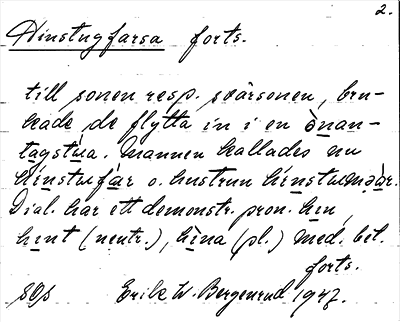 2.
Hinstugfarsa forts.
till sonen resp. svärsonen, bru-
kade de flytta in i en ònan-
tagstua. Mannen kallades nu
hínstufàr o. hustrun hínstumoàr.
Dial. har ett demonstr. pron. hin,
hint (neutr.), hina (pl.) med bet.
forts.
Erik W. Bergenrud 1947.